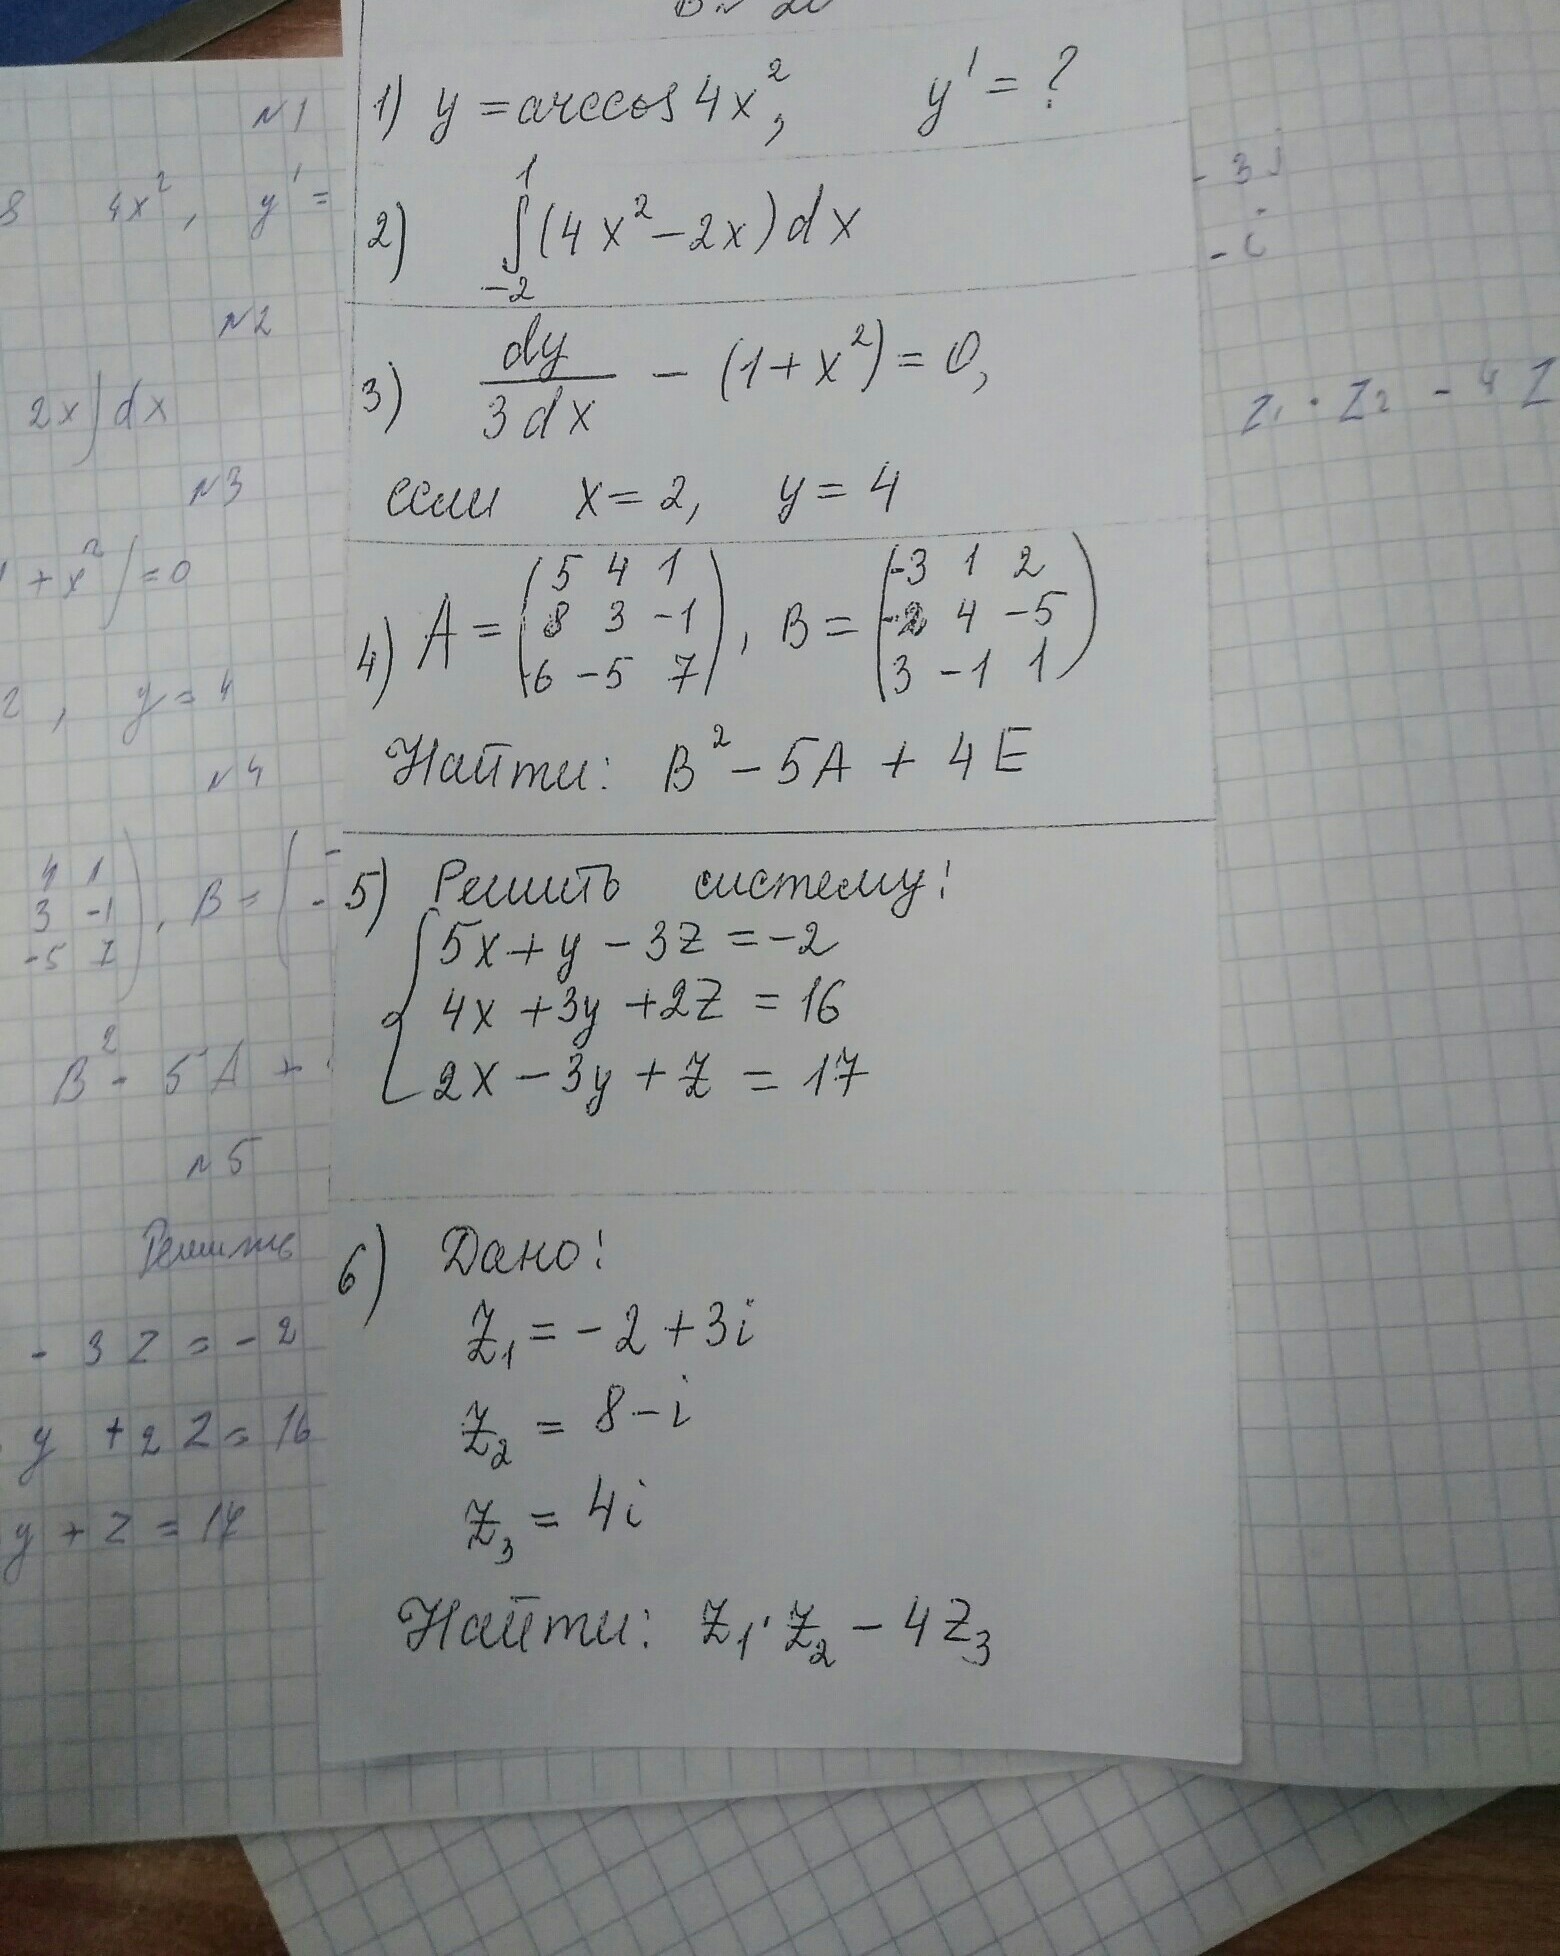 1) y = arccos 4x², y' = ?
2) ∫₋₂¹ (4x² - 2x) dx
3) dy / 3dx - (1 + x²) = 0,
если x = 2, y = 4
4) A = (5 4 1; 8 3 -1; 6 -5 7), B = (-3 1 2; -2 4 -5; 3 -1 1)
Найти: B² - 5A + 4E
5) Решить систему:
5x + y - 3z = -2
4x + 3y + 2z = 16
2x - 3y + z = 17
6) Дано:
z₁ = -2 + 3i
z₂ = 8 - i
z₃ = 4i
Найти: z₁ · z₂ - 4z₃
N1
4x², y' =
N2
2x) dx
N3
1 + x²) = 0
2, y = 4
N4
4 1
3 -1 , B = ( -
-5 7
B² - 5A +
N5
Решить
- 3z = -2
y + 2z = 16
y + z = 17
- 3i
- i
z₁ · z₂ - 4z